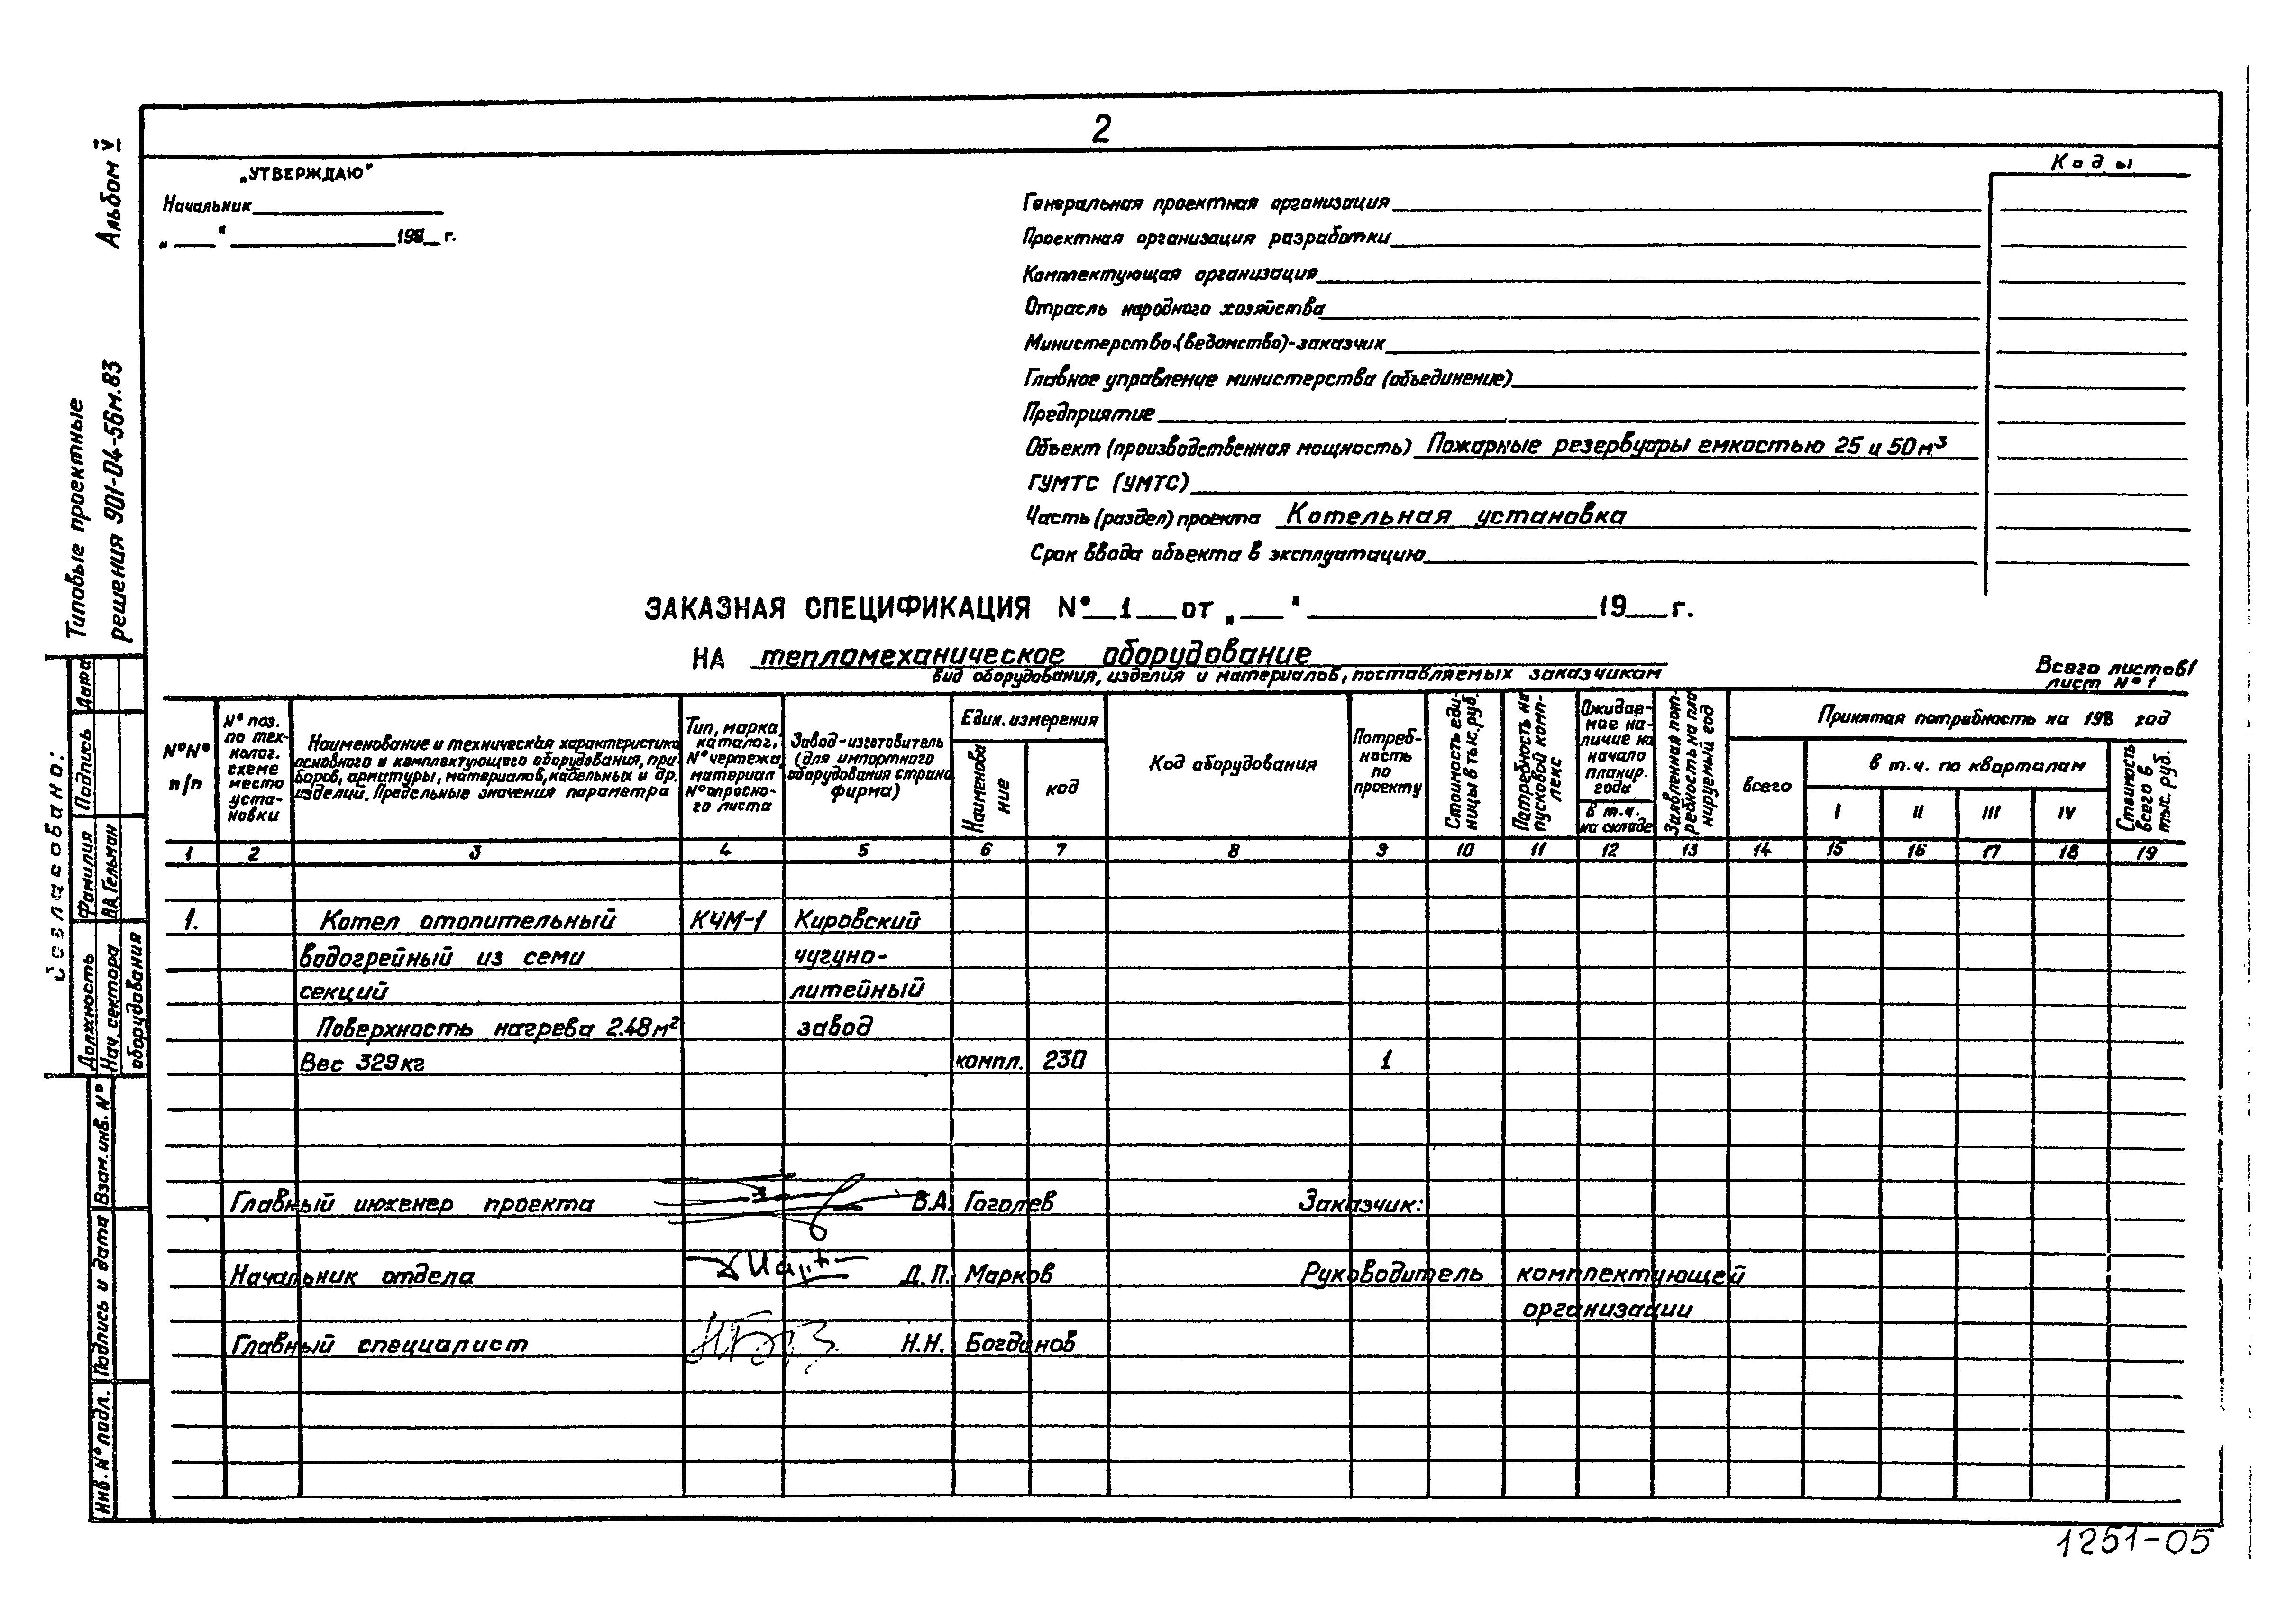 2
Альбом V
Типовые проектные
решения 901-04-56м.83
„УТВЕРЖДАЮ"
Начальник
„ " 198 г.
Коды
Генеральная проектная организация
Проектная организация разработки
Комплектующая организация
Отрасль народного хозяйства
Министерство (ведомство)-заказчик
Главное управление министерства (объединение)
Предприятие
Объект (производственная мощность) Пожарные резервуары емкостью 25 и 50 м³
ГУМТС (УМТС)
Часть (раздел) проекта Котельная установка
Срок ввода объекта в эксплуатацию
ЗАКАЗНАЯ СПЕЦИФИКАЦИЯ № 1 от „ " 19 г.
НА тепломеханическое оборудование
вид оборудования, изделия и материалов, поставляемых заказчиком
Всего листов 1
лист № 1
№№
п/п
№ поз.
по тех-
нолог.
схеме
место
уста-
новки
Наименование и техническая характеристика
основного и комплектующего оборудования, при-
боров, арматуры, материалов, кабельных и др.
изделий. Предельные значения параметра
Тип, марка,
каталог,
№ чертежа,
материал
№ опросно-
го листа
Завод-изготовитель
(для импортного
оборудования страна
фирма)
Един. измерения
Наименова
ние
код
Код оборудования
Потреб-
ность
по
проекту
Стоимость еди-
ницы в тыс. руб.
Потребность на
пусковой комп-
лекс
Ожидае-
мое на-
личие на
начало
планир.
года
в т.ч.
на складе
Заявленная пот-
ребность на пла-
нируемый год
Принятая потребность на 198 год
всего
в т.ч. по кварталам
I II III IV
Стоимость
всего в
тыс. руб.
1 2 3 4 5 6 7 8 9 10 11 12 13 14 15 16 17 18 19
1. Котел отопительный КЧМ-1 Кировский
водогрейный из семи чугуно-
секций литейный
Поверхность нагрева 2.48 м² завод
Вес 329 кг компл. 230 1
Главный инженер проекта В.А. Гоголев Заказчик:
Начальник отдела Д.П. Марков Руководитель комплектующей
организации
Главный специалист Н.Н. Богданов
Согласовано:
Должность Фамилия Подпись Дата
Нач. сектора В.А. Гельман
оборудования
Взам. инв. №
Подпись и дата
Инв. № подл.
1251-05